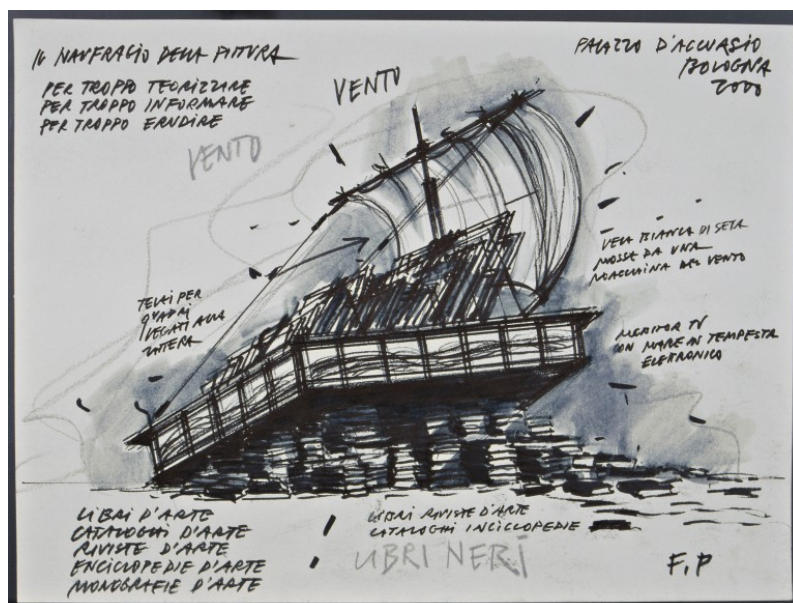 IL NAUFRAGIO DELLA PITTURA
PER TROPPO TEORIZZARE
PER TROPPO INFORMARE
PER TROPPO ERUDIRE
VENTO
VENTO
PALAZZO D'ACCURSIO
BOLOGNA
2000
TELAI PER
QUADRI
LEGATI ALLA
ZATTERA
VELA BIANCA DI SETA
MOSSA DA UNA
MACCHINA DEL VENTO
MONITOR TV
CON MARE IN TEMPESTA
ELETTRONICO
LIBRI D'ARTE
CATALOGHI D'ARTE
RIVISTE D'ARTE
ENCICLOPEDIE D'ARTE
MONOGRAFIE D'ARTE
LIBRI RIVISTE D'ARTE
CATALOGHI INCICLOPEDIE
LIBRI NERI
F.P